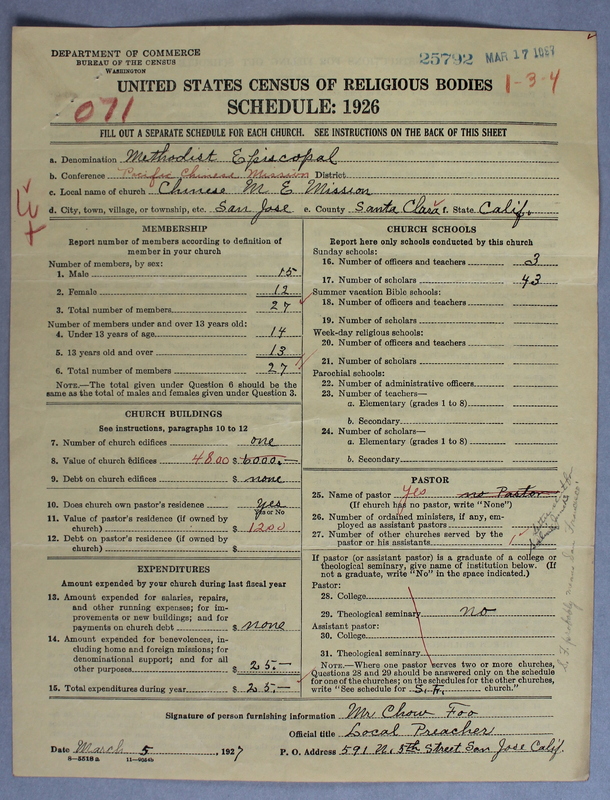 DEPARTMENT OF COMMERCE
BUREAU OF THE CENSUS
WASHINGTON
25792 MAR 17 1927
UNITED STATES CENSUS OF RELIGIOUS BODIES
1-3-4
SCHEDULE: 1926
071
FILL OUT A SEPARATE SCHEDULE FOR EACH CHURCH. SEE INSTRUCTIONS ON THE BACK OF THIS SHEET
a. Denomination Methodist Episcopal
b. Conference Pacific Chinese Mission District
c. Local name of church Chinese M E Mission
d. City, town, village, or township, etc. San Jose e. County Santa Clara f. State Calif.
MEMBERSHIP
Report number of members according to definition of
member in your church
Number of members, by sex:
1. Male 15
2. Female 12
3. Total number of members 27
Number of members under and over 13 years old:
4. Under 13 years of age 14
5. 13 years old and over 13
6. Total number of members 27
NOTE.—The total given under Question 6 should be
same as the total of males and females given under Question 3.
CHURCH BUILDINGS
See instructions, paragraphs 10 to 12
7. Number of church edifices one
8. Value of church edifices 4800 $ 6000.—
9. Debt on church edifices $ none
10. Does church own pastor's residence yes
Yes or No
11. Value of pastor's residence (if owned by
church) $ 1200
12. Debt on pastor's residence (if owned by
church) $
EXPENDITURES
Amount expended by your church during last fiscal year
13. Amount expended for salaries, repairs,
and other running expenses; for im-
provements or new buildings; and for
payments on church debt $ none
14. Amount expended for benevolences, in-
cluding home and foreign missions; for
denominational support; and for all
other purposes $ 25.—
15. Total expenditures during year $ 25.—
CHURCH SCHOOLS
Report here only schools conducted by this church
Sunday schools:
16. Number of officers and teachers 3
17. Number of scholars 43
Summer vacation Bible schools:
18. Number of officers and teachers
19. Number of scholars
Week-day religious schools:
20. Number of officers and teachers
21. Number of scholars
Parochial schools:
22. Number of administrative officers
23. Number of teachers—
a. Elementary (grades 1 to 8)
b. Secondary
24. Number of scholars—
a. Elementary (grades 1 to 8)
b. Secondary
PASTOR
25. Name of pastor yes no Pastor
(If church has no pastor, write "None")
26. Number of ordained ministers, if any, em-
ployed as assistant pastors
27. Number of other churches served by the
pastor or his assistants 1
If pastor (or assistant pastor) is a graduate of a college or
theological seminary, give name of institution below. (If
not a graduate, write "No" in the space indicated.)
Pastor:
28. College
29. Theological seminary no
Assistant pastor:
30. College
31. Theological seminary
NOTE.—Where one pastor serves two or more churches,
Questions 28 and 29 should be answered only on the schedule
for one of the churches; on the schedules for the other churches,
write "See schedule for S. F. church."
S. F. probably means San Francisco
Signature of person furnishing information Mr Chow Foo
Official title Local Preacher
Date March 5, 1927 P. O. Address 591 N. 5th Street San Jose Calif.
8—5518 a 11—9054b